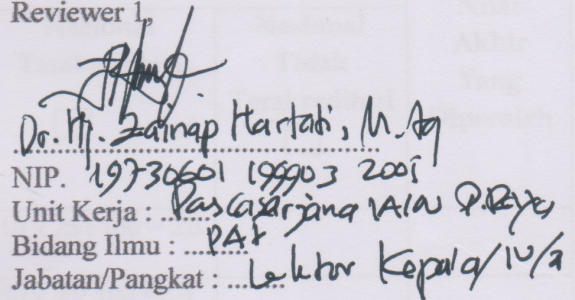 Reviewer 1,
Dr. Hj. Zainap Hartati, M.Ag
NIP. 19730601 199903 2005
Unit Kerja : Pascasarjana IAIN P.Raya
Bidang Ilmu : PAI
Jabatan/Pangkat : Lektor Kepala/IV/a